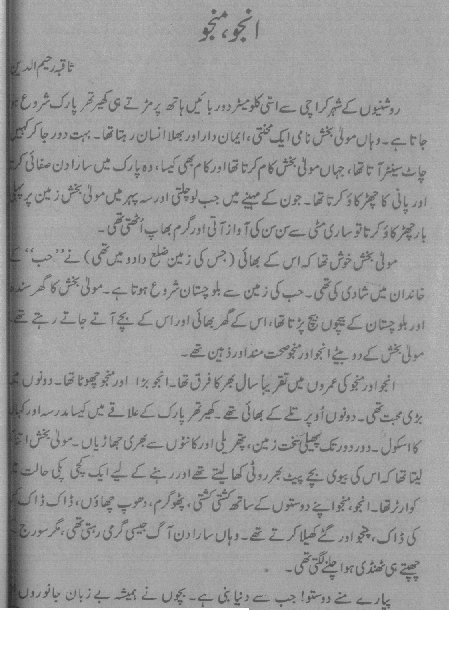 انجو، منجو
ثاقبہ رحیم الدین
روشنیوں کے شہر کراچی سے اسّی کلومیٹر دور بائیں ہاتھ پر مڑتے ہی کھیرتھر پارک شروع ہو
جاتا ہے۔ وہاں مولیٰ بخش نامی ایک محنتی، ایمان دار اور بھلا انسان رہتا تھا۔ بہت دور جا کر کہیں
چاٹ سینٹر آتا تھا، جہاں مولیٰ بخش کام کرتا تھا اور کام بھی کیسا، وہ پارک میں سارا دن صفائی کرتا
اور پانی کا چھڑکاؤ کرتا تھا۔ جون کے مہینے میں جب لو چلتی اور سہ پہر میں مولیٰ بخش زمین پر پہلی
بار چھڑکاؤ کرتا تو ساری مٹی سے سن سن کی آواز آتی اور گرم بھاپ اُٹھتی تھی۔
مولیٰ بخش خوش تھا کہ اس کے بھائی (جس کی زمین ضلع دادو میں تھی) نے ”حب“ کے
خاندان میں شادی کی تھی۔ حب کی زمین سے بلوچستان شروع ہوتا ہے۔ مولیٰ بخش کا گھر سندھ
اور بلوچستان کے بیچوں بیچ پڑتا تھا، اس کے گھر بھائی اور اس کے بچے آتے جاتے رہتے تھے۔
مولیٰ بخش کے دو بیٹے انجو اور منجو صحت مند اور ذہین تھے۔
انجو اور منجو کی عمروں میں تقریباً سال بھر کا فرق تھا۔ انجو بڑا اور منجو چھوٹا تھا۔ دونوں میں
بڑی محبت تھی۔ دونوں اُوپر تلے کے بھائی تھے۔ کھیرتھر پارک کے علاقے میں کیسا مدرسہ اور کہاں
کا اسکول۔ دور دور تک پھیلی سخت زمین، پتھریلی اور کانٹوں سے بھری جھاڑیاں۔ مولیٰ بخش اتنا
لیتا تھا کہ اس کی بیوی بچے پیٹ بھر روٹی کھا لیتے تھے اور رہنے کے لیے ایک کچی پکی حالت کا
کوارٹر تھا۔ انجو، منجو اپنے دوستوں کے ساتھ کشتی کشتی، پٹھو گرم، دھوپ چھاؤں، ڈاک ڈاک کس
کی ڈاک، پنجو اور گٹے کھیلا کرتے تھے۔ وہاں سارا دن آگ جیسی گرمی رہتی تھی، مگر سورج
چھپتے ہی ٹھنڈی ہوا چلنے لگتی تھی۔
پیارے منے دوستو! جب سے دنیا بنی ہے۔ بچوں نے ہمیشہ بے زبان جانوروں